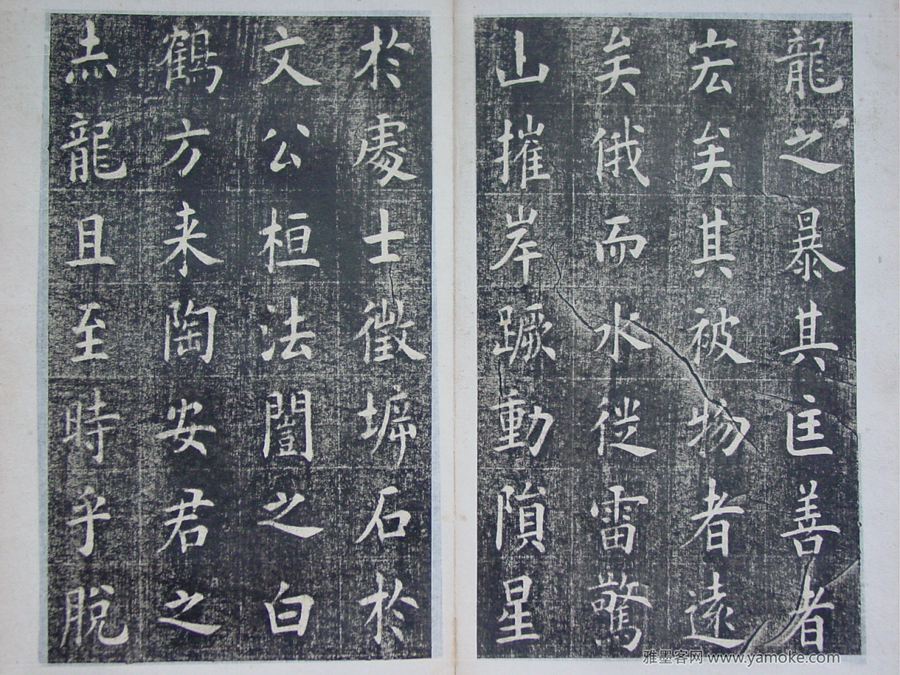 龍之暴其匡善者
宏矣其被物者遠
矣俄而水徙雷驚
山摧岸蹶動隕星
於處士徵塀石於
文公桓法闓之白
鶴方来陶安君之
赤龍且至時乎脫
雅墨客网 www.yamoke.com